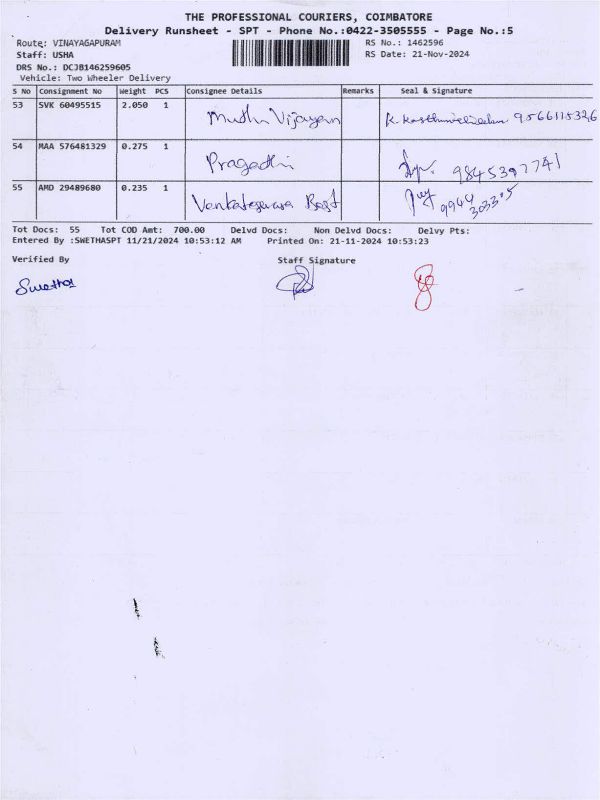 THE PROFESSIONAL COURIERS, COIMBATORE
Delivery Runsheet - SPT - Phone No.:0422-3505555 - Page No.:5
Route: VINAYAGAPURAM
RS No.: 1462596
Staff: USHA
RS Date: 21-Nov-2024
DRS No.: DCJB146259605
Vehicle: Two Wheeler Delivery
S No Consignment No Weight PCS Consignee Details Remarks Seal & Signature
53 SVK 60495515 2.050 1 Muthu Vijayan
54 MAA 576481329 0.275 1 Pragadhi
55 AMD 29489680 0.235 1 Venkateswara
Tot Docs: 55 Tot COD Amt: 700.00 Delvd Docs: Non Delvd Docs: Delvy Pts:
Entered By :SWETHASPT 11/21/2024 10:53:12 AM Printed On: 21-11-2024 10:53:23
Verified By Staff Signature
Swetha